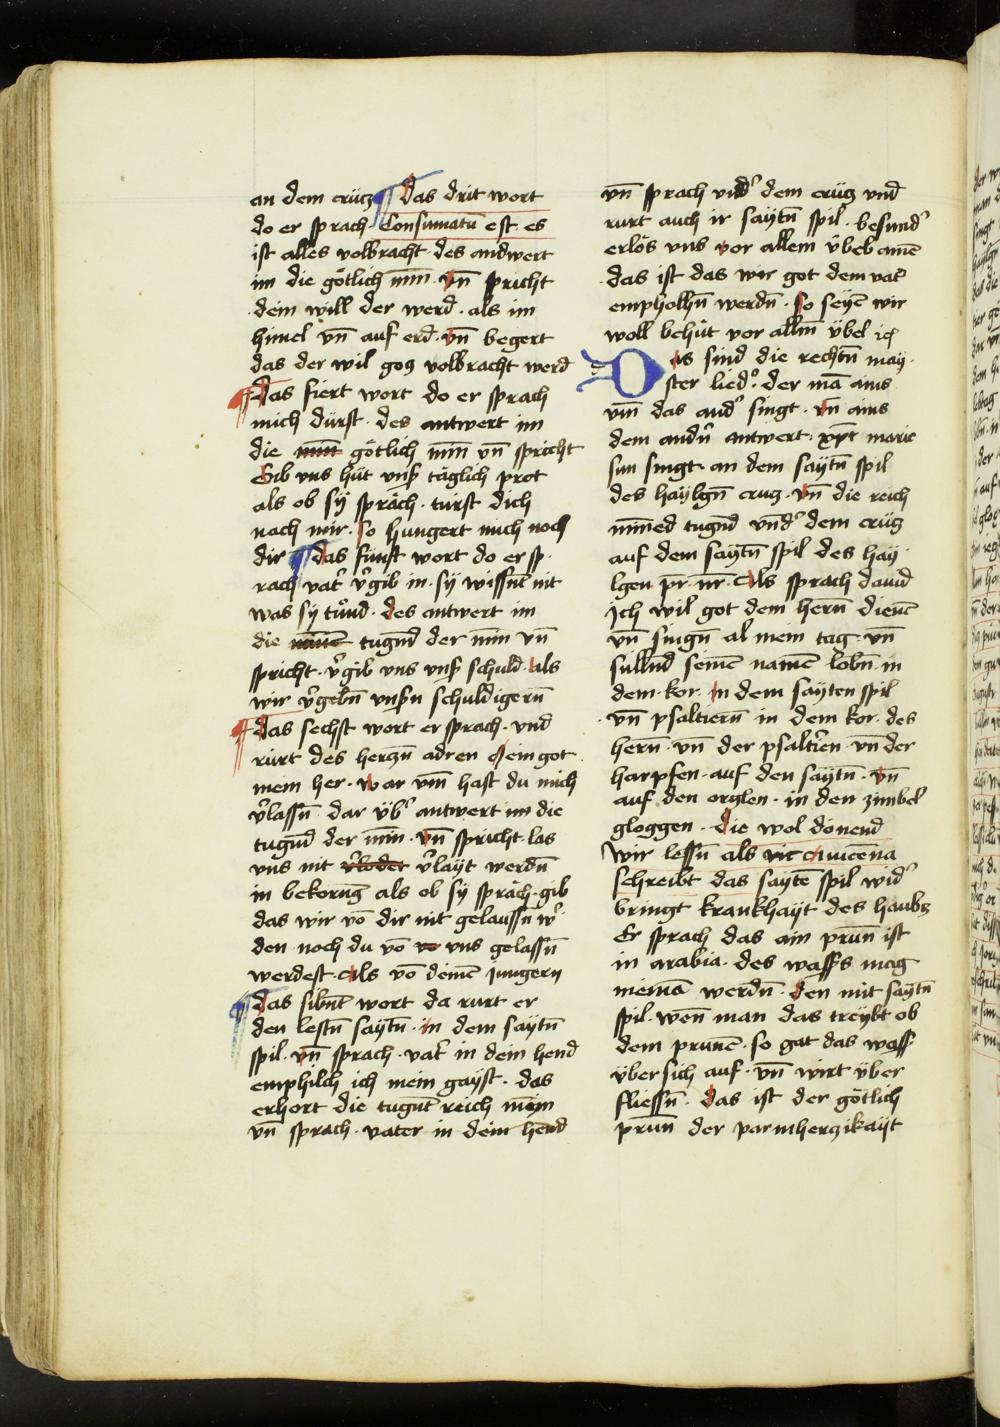 an dem crütz ¶ das drit wort
do er sprach Consumatū est es
ist alles volbracht · des andwert
im die götlich mīn · vn̄ spricht
dein will der werd · als im
himel vn̄ auf erd · vn̄ begert
das der wil gotz volbracht werd
¶ das fiert wort do er sprach
mich dürst · des antwert im
die götlich mīn vn̄ spricht
Gib vns hüt vnsß täglich prot
als ob sÿ spräch · türst dich
nach mir · so hungert mich noch
dir ¶ das fünft wort do er sp
rach vat' v'gib in · sy wissñt nit
was sÿ tůnd · des antwert im
die tugn̄d der mīn vn̄
spricht · v'gib vns vnsß schuld · als
wir v'gebn̄ vnsßn schuldigern̄
¶ das sechst wort er sprach · vnd
rürt des hertzn̄ adren Mein got
mein her · war vm̄ hast du mich
v'lassn̄ · dar üb' antwert im die
tugn̄d der mīn · vn̄ spricht · las
vns nit v'layt werdn̄
in bekorūg als ob sy spräch · gib
das wir vō dir nit gelaussn̄ w'
den noch du vō vns gelassn̄
werdest · als vō deinē jungern
¶ das sibnt wort da rurt er
den lestn̄ saytn̄ · in dem saytn̄
spil · vn̄ sprach · vat' in dein hend
emphilch ich mein gayst · das
erhort die tugn̄t reich mein
vn̄ sprach · vater in dein hend
vn̄ sprach vnd' dem crütz vnd
rurt auch ir saytn̄ spil · besund'
erlös vns vor allem übeb amē
das ist das wir got dem vat'
empholhn̄ werdn̄ · so seyē wir
woll behüt vor allm̄ übel
Das sind die rechtn̄ may
ster lied' · der mā ains
vm̄ das and' singt · vn̄ ains
dem andn̄ antwert · xp̄t marie
sun singt · an dem saytn̄ spil
des haylgn̄ crutz · vn̄ die reich
mīned tugn̄d vnd' dem crütz
auf dem saytn̄ spil des hay
lgen pr̄ nr̄ · Als sprach dauid
Ich wil got dem hern̄ dienē
vn̄ singn̄ al mein tag · vn̄
sulln̄d seinē namē lobn̄ · in
dem · kor · in dem sayten spil
vn̄ psaltiern̄ in dem kor · des
hern̄ · vn̄ der psaltren · vn̄ der
harpfen · auf den saytn̄ · vn̄
auf den orglen · in den zimbel
gloggen · die wol dönend
Wir lessn̄ als Auicēna
schreibt das saytē spil wid'
bringt krankhayt des haubtz
Er sprach das ain prun̄ ist
in arabia · des wassers mag
niemā werdn̄ · den mit saytn̄
spil · wen̄ man das treybt ob
dem prunē · so gat das wasß
übersich auf · vn̄ wirt über
fliessn̄ · das ist der götlich
prun̄ der parmhertzikayt